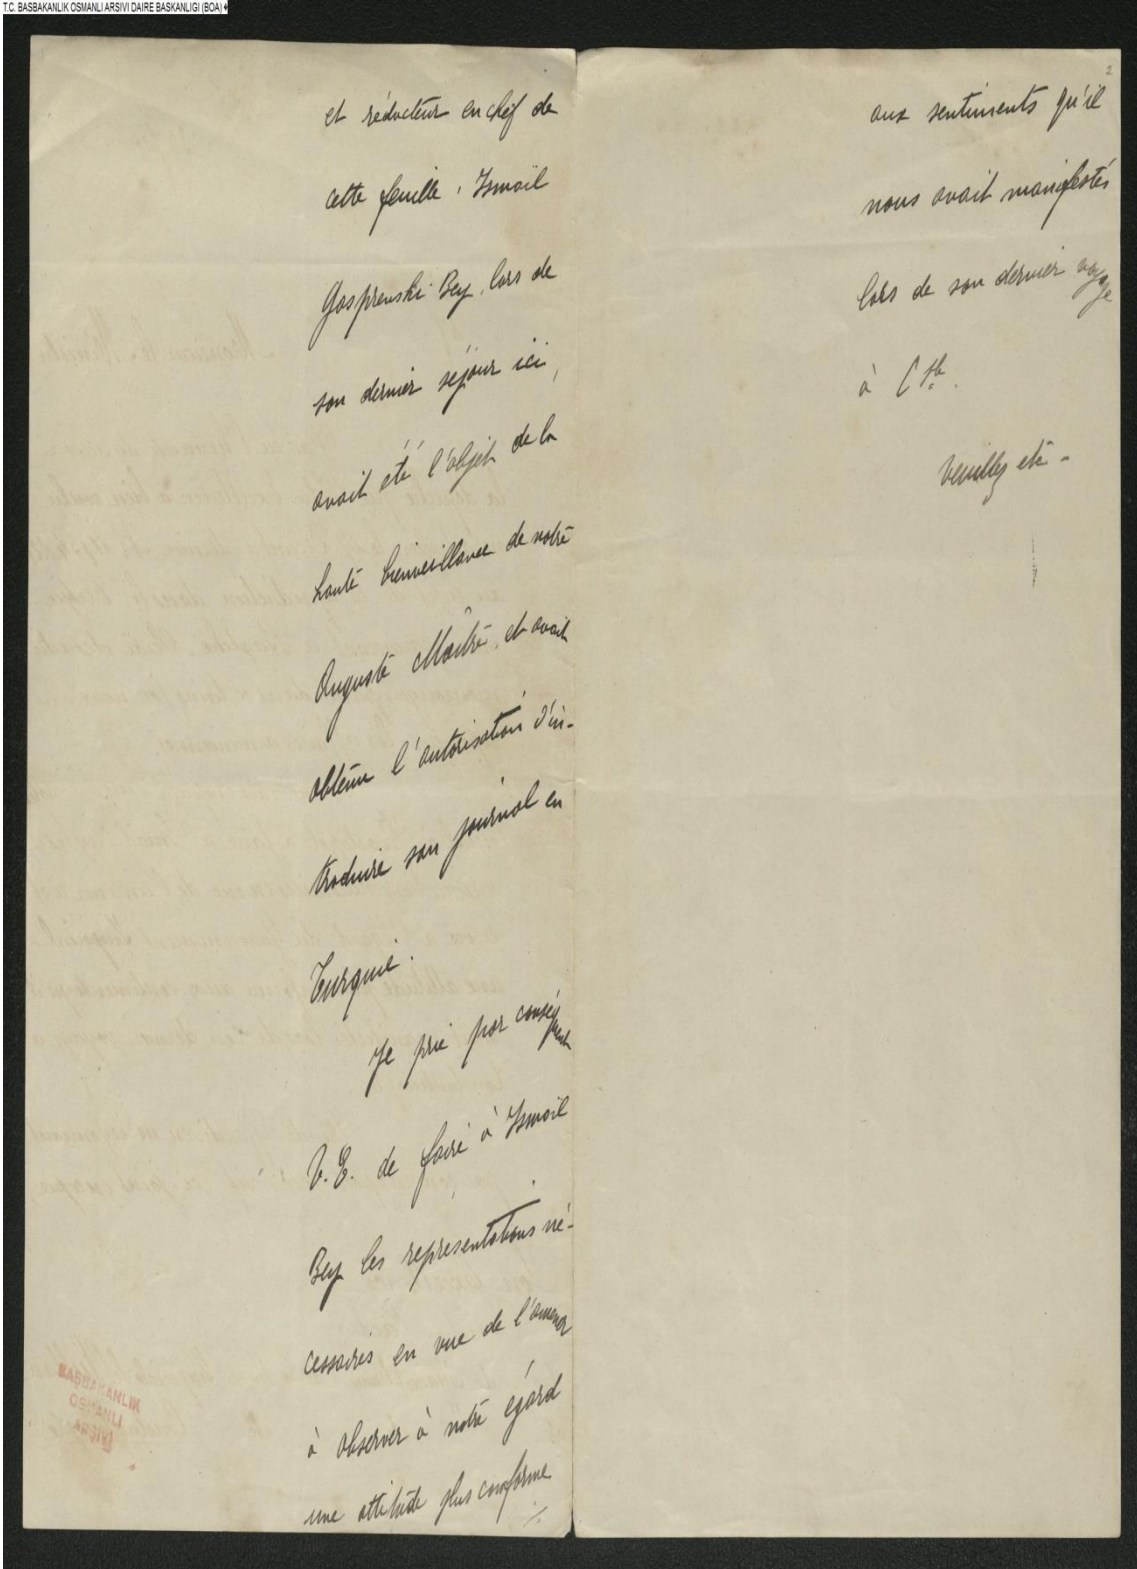 T.C. BASBAKANLIK OSMANLI ARSIVI DAIRE BASKANLIGI (BOA)
et rédacteur en chef de
cette feuille, Ismaïl
Gasprenski Bey, lors de
son dernier séjour ici,
avait été l'objet de la
haute bienveillance de notre
Auguste Maître, et avait
obtenu l'autorisation d'in-
troduire son journal en
Turquie.
Je prie par conséquent
V.E. de faire à Ismaïl
Bey les représentations né-
cessaires en vue de l'amener
à observer à notre égard
une attitude plus conforme
./.
BAŞBAKANLIK
OSMANLI
ARŞİVİ
2
aux sentiments qu'il
nous avait manifestés
lors de son dernier voyage
à C
Veuillez etc -